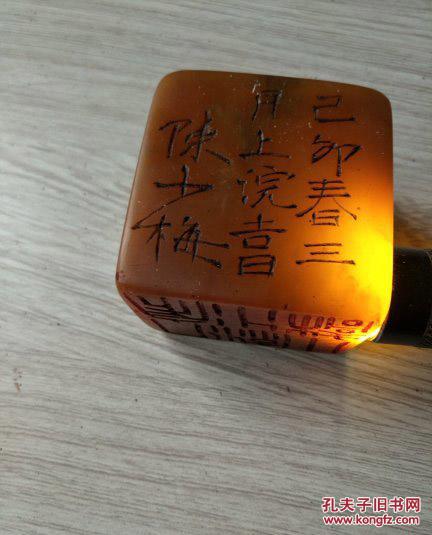 己卯春三
月上浣吉日
陳少梅
孔夫子旧书网
www.kongfz.com